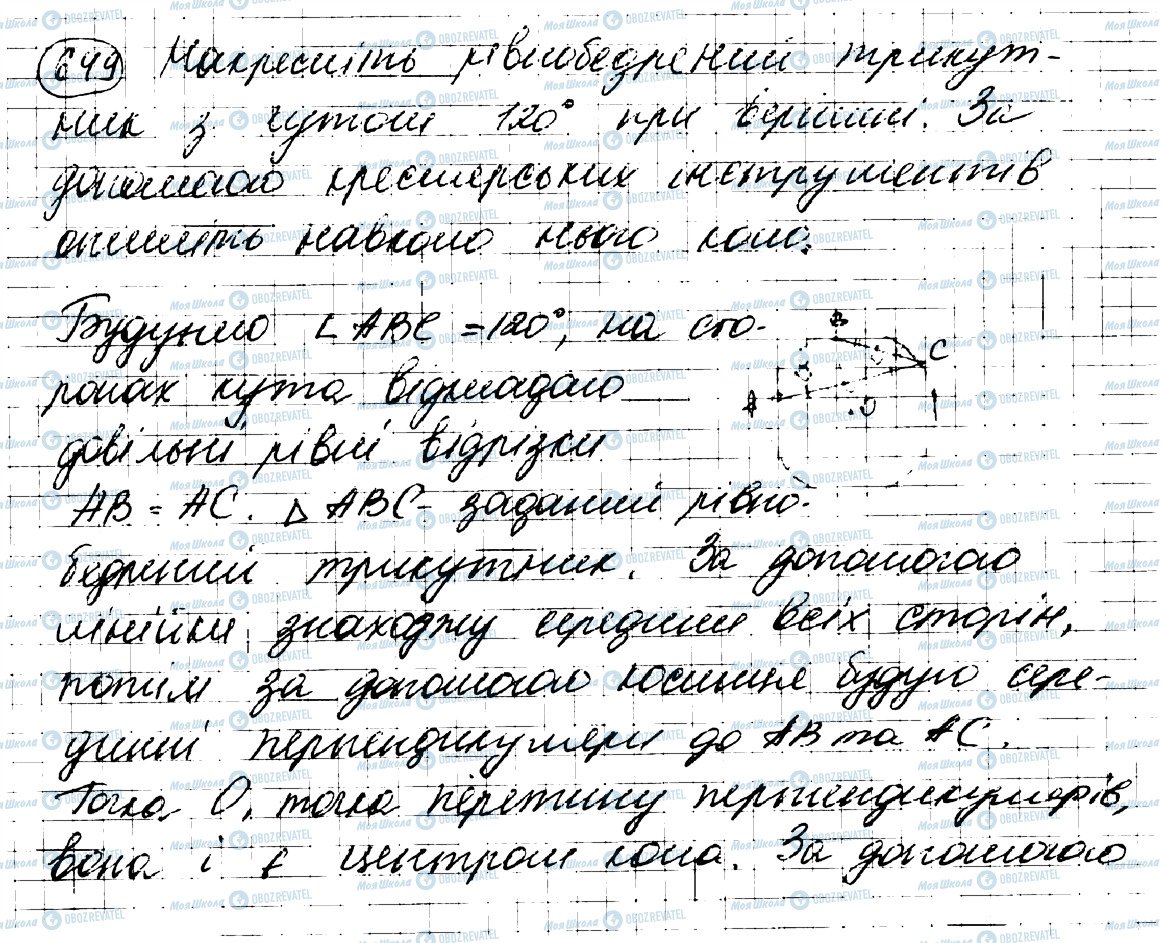 649 Накресліть рівнобедрений трикут-
ник з кутом 120° при вершині. За
допомогою креслярських інструментів
опишіть навколо нього коло.
Будуємо ∠ABC = 120°, на сто-
ронах кута відкладаю
довільні рівні відрізки
AB = AC. △ABC - заданий рівно-
бедрений трикутник. За допомогою
лінійки знаходжу середини всіх сторін,
потім за допомогою косинця будую сере-
динні перпендикуляри до AB та AC.
Точка O, точка перетину перпендикулярів,
вона і є центром кола. За допомогою
B
C
A
O